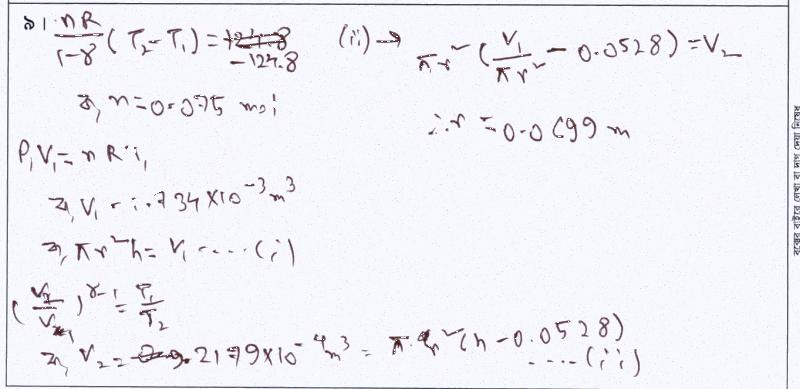 ৯। nR/(1-γ) (T₂-T₁) = -124.8
বা, n = 0.075 mol
P₁V₁ = nRT₁
বা, V₁ = 1.734×10⁻³ m³
বা, πr²h = V₁ ---- (i)
(V₂/V₁)^(γ-1) = T₁/T₂
বা, V₂ = 9.2179×10⁻⁴ m³ = πr²(h - 0.0528) ---- (ii)
(ii) → πr² (V₁/πr² - 0.0528) = V₂
∴ r = 0.0699 m
বক্সের বাইরে লেখা বা দাগ দেয়া নিষেধ